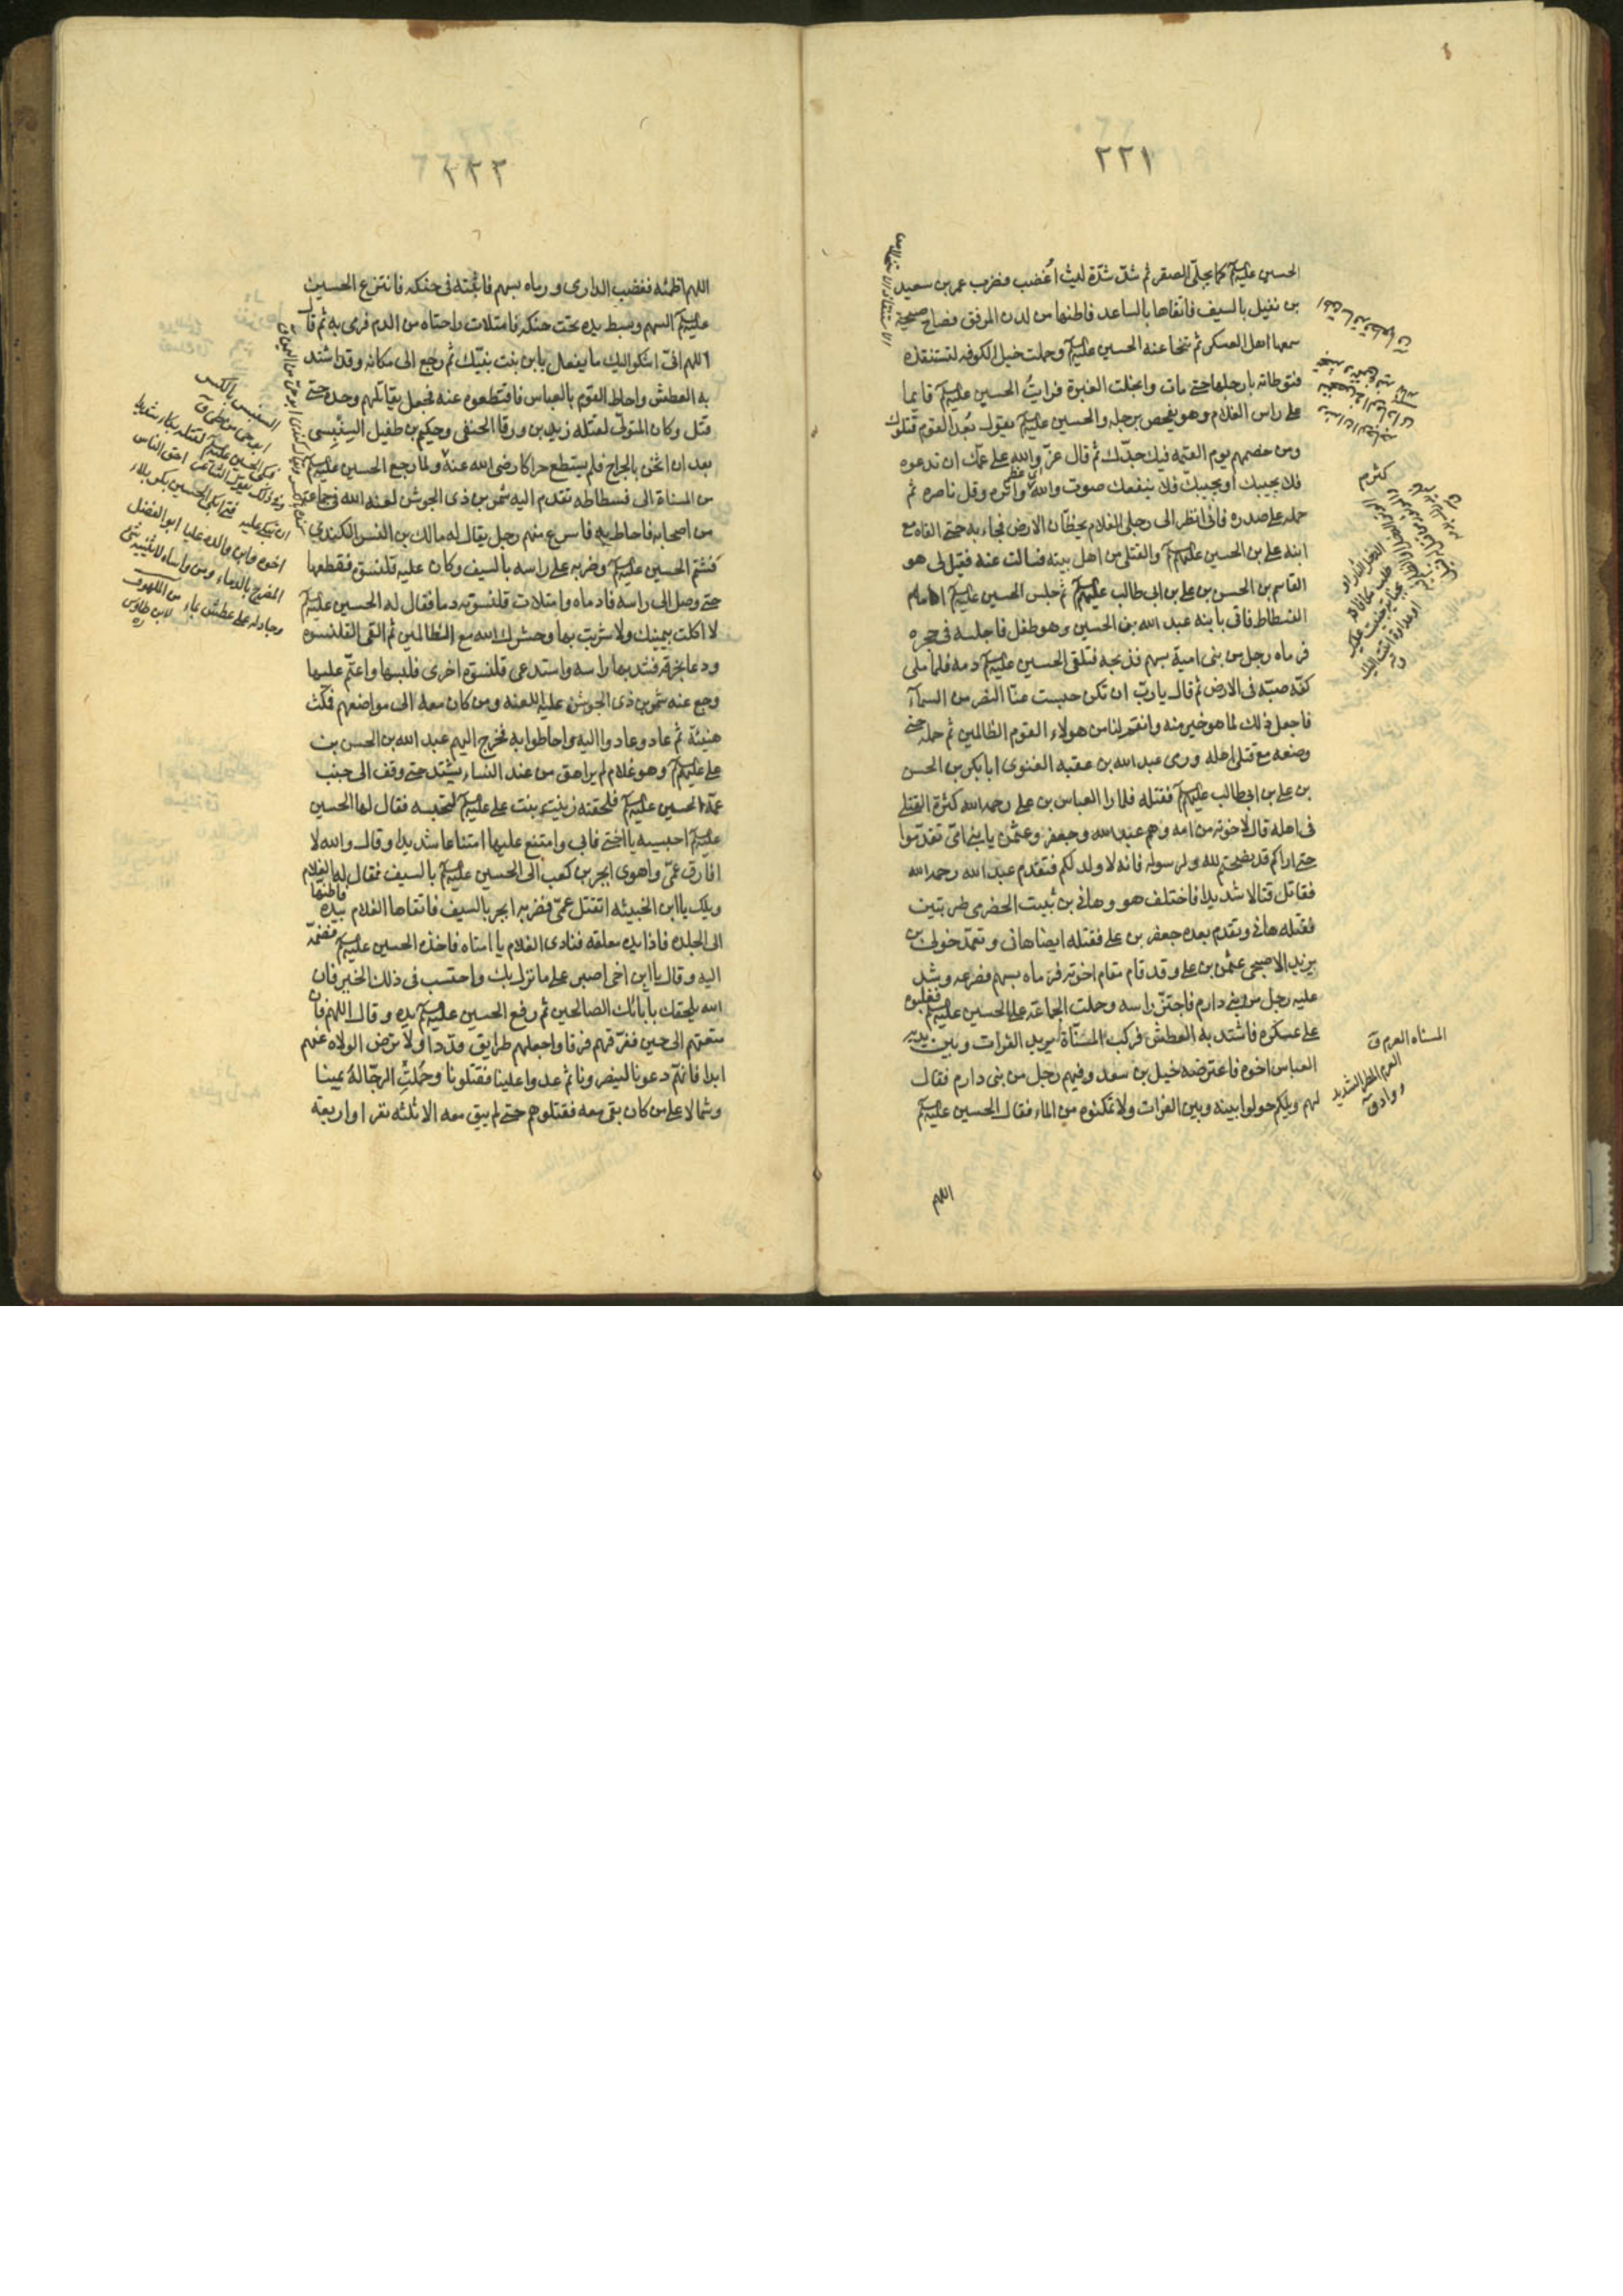 ٢٢١
الحسين عليه السلم كما يجلى الصقر ثم شدّ شدّة ليث اُغضب فضرب عمر بن سعيد
بن نفيل بالسيف فاتقاها بالساعد فاطنها من لدن المرفق فصاح صيحة
سمعها اهل العسكر ثم تنحا عنه الحسين عليه السلم وحملت خيل الكوفه لتستنقذه
فتوطاته بارجلها حتى مات وانجلت الغبرة فرايتُ الحسين عليه السلم قايما
على راس الغلام وهو يفحص برجله والحسين عليه السلم يقول بُعدا لقوم قتلوك
ومن خصمهم يوم القيمه فيك جدّك ثم قال عزّ والله على عمّك ان تدعوه
فلا يجيبك او يجيبك فلا ينفعك صوت والله كثر واتره وقل ناصره ثم
حمله على صدره فانى انظر الى رجلى الغلام يخطّان الارض فجاء به حتى القاه مع
ابنه على بن الحسين عليهم السلم والقتلى من اهل بيته فسالت عنه فقيل لى هو
القاسم بن الحسن بن على بن ابى طالب عليهم السلم ثم جلس الحسين عليه السلم امام
الفسطاط فاتى بابنه عبد الله بن الحسين وهو طفل فاجلسه فى حجره
فرماه رجل من بنى اسد بسهم فذبحه فتلقى الحسين عليه السلم دمه فلما ملى
كفّه صبّه فى الارض ثم قال يا ربّ ان تكن حبست عنّا النصر من السماء
فاجعل ذلك لما هو خير منه وانتقم لنا من هولاء القوم الظالمين ثم حمله حتى
وضعه مع قتلى اهله ورمى عبد الله بن عقبه الغنوى ابا بكر بن الحسن
بن على بن ابى طالب عليهم السلم فقتله فلما را العباس بن على رحمه الله كثرة القتلى
فى اهله قال لاخوته من امه وهم عبد الله وجعفر وعثمن يا بنى امّى تقدّموا
حتى اراكم قد نصحتم لله ولرسوله فانه لا ولد لكم فتقدم عبد الله رحمه الله
فقاتل قتالا شديدا فاختلف هو وهانى بن ثبيت الحضرمى ضربتين
فقتله هانى وتقدم بعده جعفر بن على فقتله ايضا هانى وتعمّد خولى بن
يزيد الاصبحى عثمن بن على وقد قام مقام اخوته فرماه بسهم فصرعه وشد
عليه رجل من بنى دارم فاجتزّ راسه وحملت الجماعة على الحسين عليه السلم فغلبوه
على عسكره فاشتد به العطش فركب المسنّاة يريد الفرات وبين يديه
العباس اخوه فاعترضه خيل بن سعد وفيهم رجل من بنى دارم فقال
لهم ويلكم حولوا بينه وبين الفرات ولا تمكنوه من الماء فقال الحسين عليه السلم
المسناه العرم ق
العرم المطر الشديد
وواد ق
اللهم
٢٢٢
اللهم اظمئه فغضب الدارمى ورماه بسهم فاثبته فى حنكه فانتزع الحسين
عليه السلم السهم وبسط يده تحت حنكه فامتلات راحتاه من الدم فرمى به ثم قال
اللهم انّى اشكوا اليك ما يفعل بابن بنت نبيّك ثم رجع الى مكانه وقد اشتد
به العطش واحاط القوم بالعباس فاقتطعوه عنه فجعل يقاتلهم وحده حتى
قتل وكان المتولّى لقتله زيد بن ورقا الحنفى وحكيم بن طفيل السنبسى
بعد ان اثخن بالجراح فلم يستطع حراكا رضى الله عنه ولما رجع الحسين عليه السلم
من المسناة الى فسطاطه تقدم اليه شمر بن ذى الجوشن لعنه الله فى جماعة
من اصحابه فاحاط به فاسرع منهم رجل يقال له مالك بن النسر الكندى
فشتم الحسين عليه السلم وضربه على راسه بالسيف وكان عليه قلنسوة فقطعها
حتى وصل الى راسه فادماه وامتلات قلنسوته دما فقال له الحسين عليه السلم
لا اكلت بيمينك ولا شربت بها وحشرك الله مع الظالمين ثم القى القلنسوه
ودعا بخرقة فشد بها راسه واستدعى قلنسوة اخرى فلبسها واعتمّ عليها
ورجع عنه شمر بن ذى الجوشن عليه اللعنه ومن كان معه الى مواضعهم فمكث
هنيئة ثم عاد وعادوا اليه واحاطوا به فخرج اليهم عبد الله بن الحسن بن
على عليهم السلم وهو غلام لم يراهق من عند النساء يشتد حتى وقف الى جنب
عمّه الحسين عليه السلم فلحقته زينب بنت على عليه السلم لتحبسه فقال لها الحسين
عليه السلم احبسيه يا اختى فابى وامتنع عليها امتناعا شديدا وقال والله لا
افارق عمّى واهوى ابجر بن كعب الى الحسين عليه السلم بالسيف فقال له الغلام
ويلك يا ابن الخبيثه اتقتل عمّى فضربه ابجر بالسيف فاتقاها الغلام بيده فاطنها
الى الجلده فاذا يده معلقه فنادى الغلام يا امتاه فاخذه الحسين عليه السلم فضمّه
اليه وقال يا ابن اخى اصبر على ما نزل بك واحتسب فى ذلك الخير فان
الله يلحقك بابائك الصالحين ثم رفع الحسين عليه السلم يده وقال اللهم فان
متعتهم الى حين ففرّقهم فرقا واجعلهم طرايق قددا ولا ترض الولاه عنهم
ابدا فانهم دعونا لينصرونا ثم عدوا علينا فقتلونا وحُملتْ الرجّالة يمينا
وشمالا على من كان بقى معه فقتلوهم حتى لم يبق معه الا ثلثه نفر او اربعة
السنبس بالكسر
ابو حى من طى ق
فبكى الحسين عليه السلم لقتله بكاء شديدا
وفى ذلك يقول الشاعر احق الناس
ان يبكى عليه فتى ابكى الحسين بكربلاء
اخوه وابن والده عليا ابو الفضل
المضرج بالدماء ومن واساه لا يثنيه شئ
وجادله على عطش بماء من اللهوف
لابن طاوس
ره